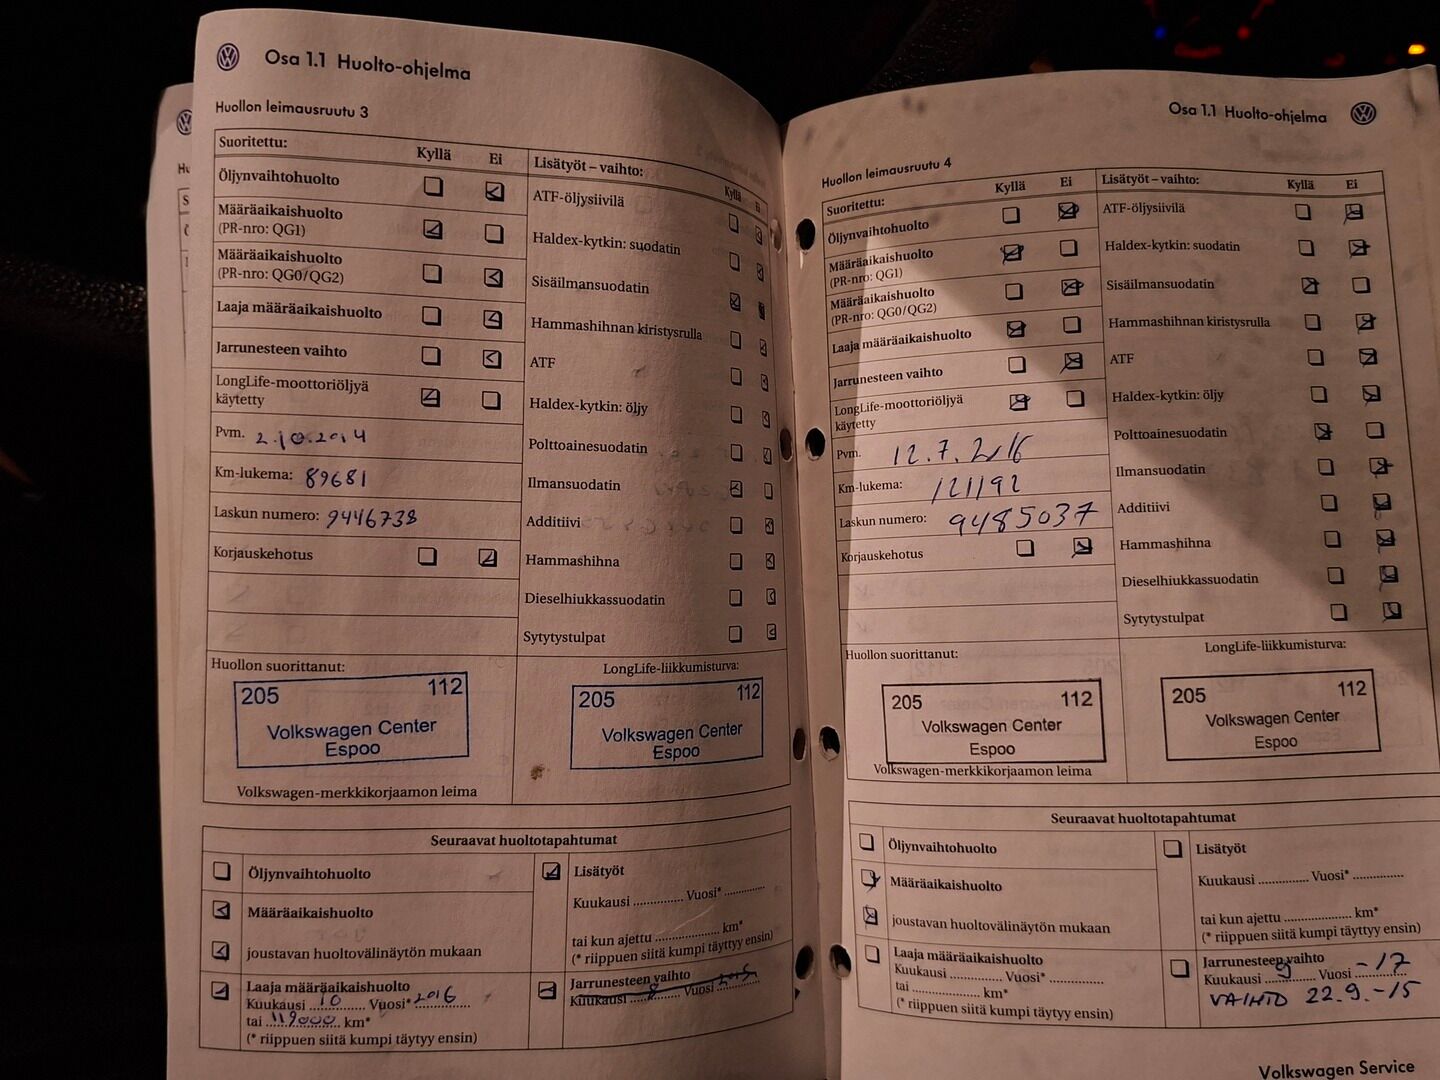 Osa 1.1 Huolto-ohjelma
Huollon leimausruutu 3
Suoritettu:
Kyllä
Ei
Öljynvaihtohuolto
Määräaikaishuolto
(PR-nro: QG1)
Määräaikaishuolto
(PR-nro: QG0/QG2)
Laaja määräaikaishuolto
Jarrunesteen vaihto
LongLife-moottoriöljyä
käytetty
Pvm. 2.10.2014
Km-lukema: 89681
Laskun numero: 9446738
Korjauskehotus
Lisätyöt – vaihto:
Kyllä
Ei
ATF-öljysiivilä
Haldex-kytkin: suodatin
Sisäilmansuodatin
Hammashihnan kiristysrulla
ATF
Haldex-kytkin: öljy
Polttoainesuodatin
Ilmansuodatin
Additiivi
Hammashihna
Dieselhiukkassuodatin
Sytytystulpat
Huollon suorittanut:
205 112
Volkswagen Center
Espoo
Volkswagen-merkkikorjaamon leima
LongLife-liikkumisturva:
205 112
Volkswagen Center
Espoo
Seuraavat huoltotapahtumat
Öljynvaihtohuolto
Määräaikaishuolto
joustavan huoltovälinäytön mukaan
Laaja määräaikaishuolto
Kuukausi 10 Vuosi* 2016
tai 119000 km*
(* riippuen siitä kumpi täyttyy ensin)
Lisätyöt
Kuukausi .............. Vuosi* ..............
tai kun ajettu .................... km*
(* riippuen siitä kumpi täyttyy ensin)
Jarrunesteen vaihto
Kuukausi 8 Vuosi 2015
Osa 1.1 Huolto-ohjelma
Huollon leimausruutu 4
Suoritettu:
Kyllä
Ei
Öljynvaihtohuolto
Määräaikaishuolto
(PR-nro: QG1)
Määräaikaishuolto
(PR-nro: QG0/QG2)
Laaja määräaikaishuolto
Jarrunesteen vaihto
LongLife-moottoriöljyä
käytetty
Pvm. 12.7.2016
Km-lukema: 121192
Laskun numero: 9485037
Korjauskehotus
Lisätyöt – vaihto:
Kyllä
Ei
ATF-öljysiivilä
Haldex-kytkin: suodatin
Sisäilmansuodatin
Hammashihnan kiristysrulla
ATF
Haldex-kytkin: öljy
Polttoainesuodatin
Ilmansuodatin
Additiivi
Hammashihna
Dieselhiukkassuodatin
Sytytystulpat
Huollon suorittanut:
205 112
Volkswagen Center
Espoo
Volkswagen-merkkikorjaamon leima
LongLife-liikkumisturva:
205 112
Volkswagen Center
Espoo
Seuraavat huoltotapahtumat
Öljynvaihtohuolto
Määräaikaishuolto
joustavan huoltovälinäytön mukaan
Laaja määräaikaishuolto
Kuukausi .............. Vuosi* ..............
tai .................... km*
(* riippuen siitä kumpi täyttyy ensin)
Lisätyöt
Kuukausi .............. Vuosi* ..............
tai kun ajettu .................... km*
(* riippuen siitä kumpi täyttyy ensin)
Jarrunesteen vaihto
Kuukausi 9 Vuosi -17
VAIHTO 22.9.-15
Volkswagen Service